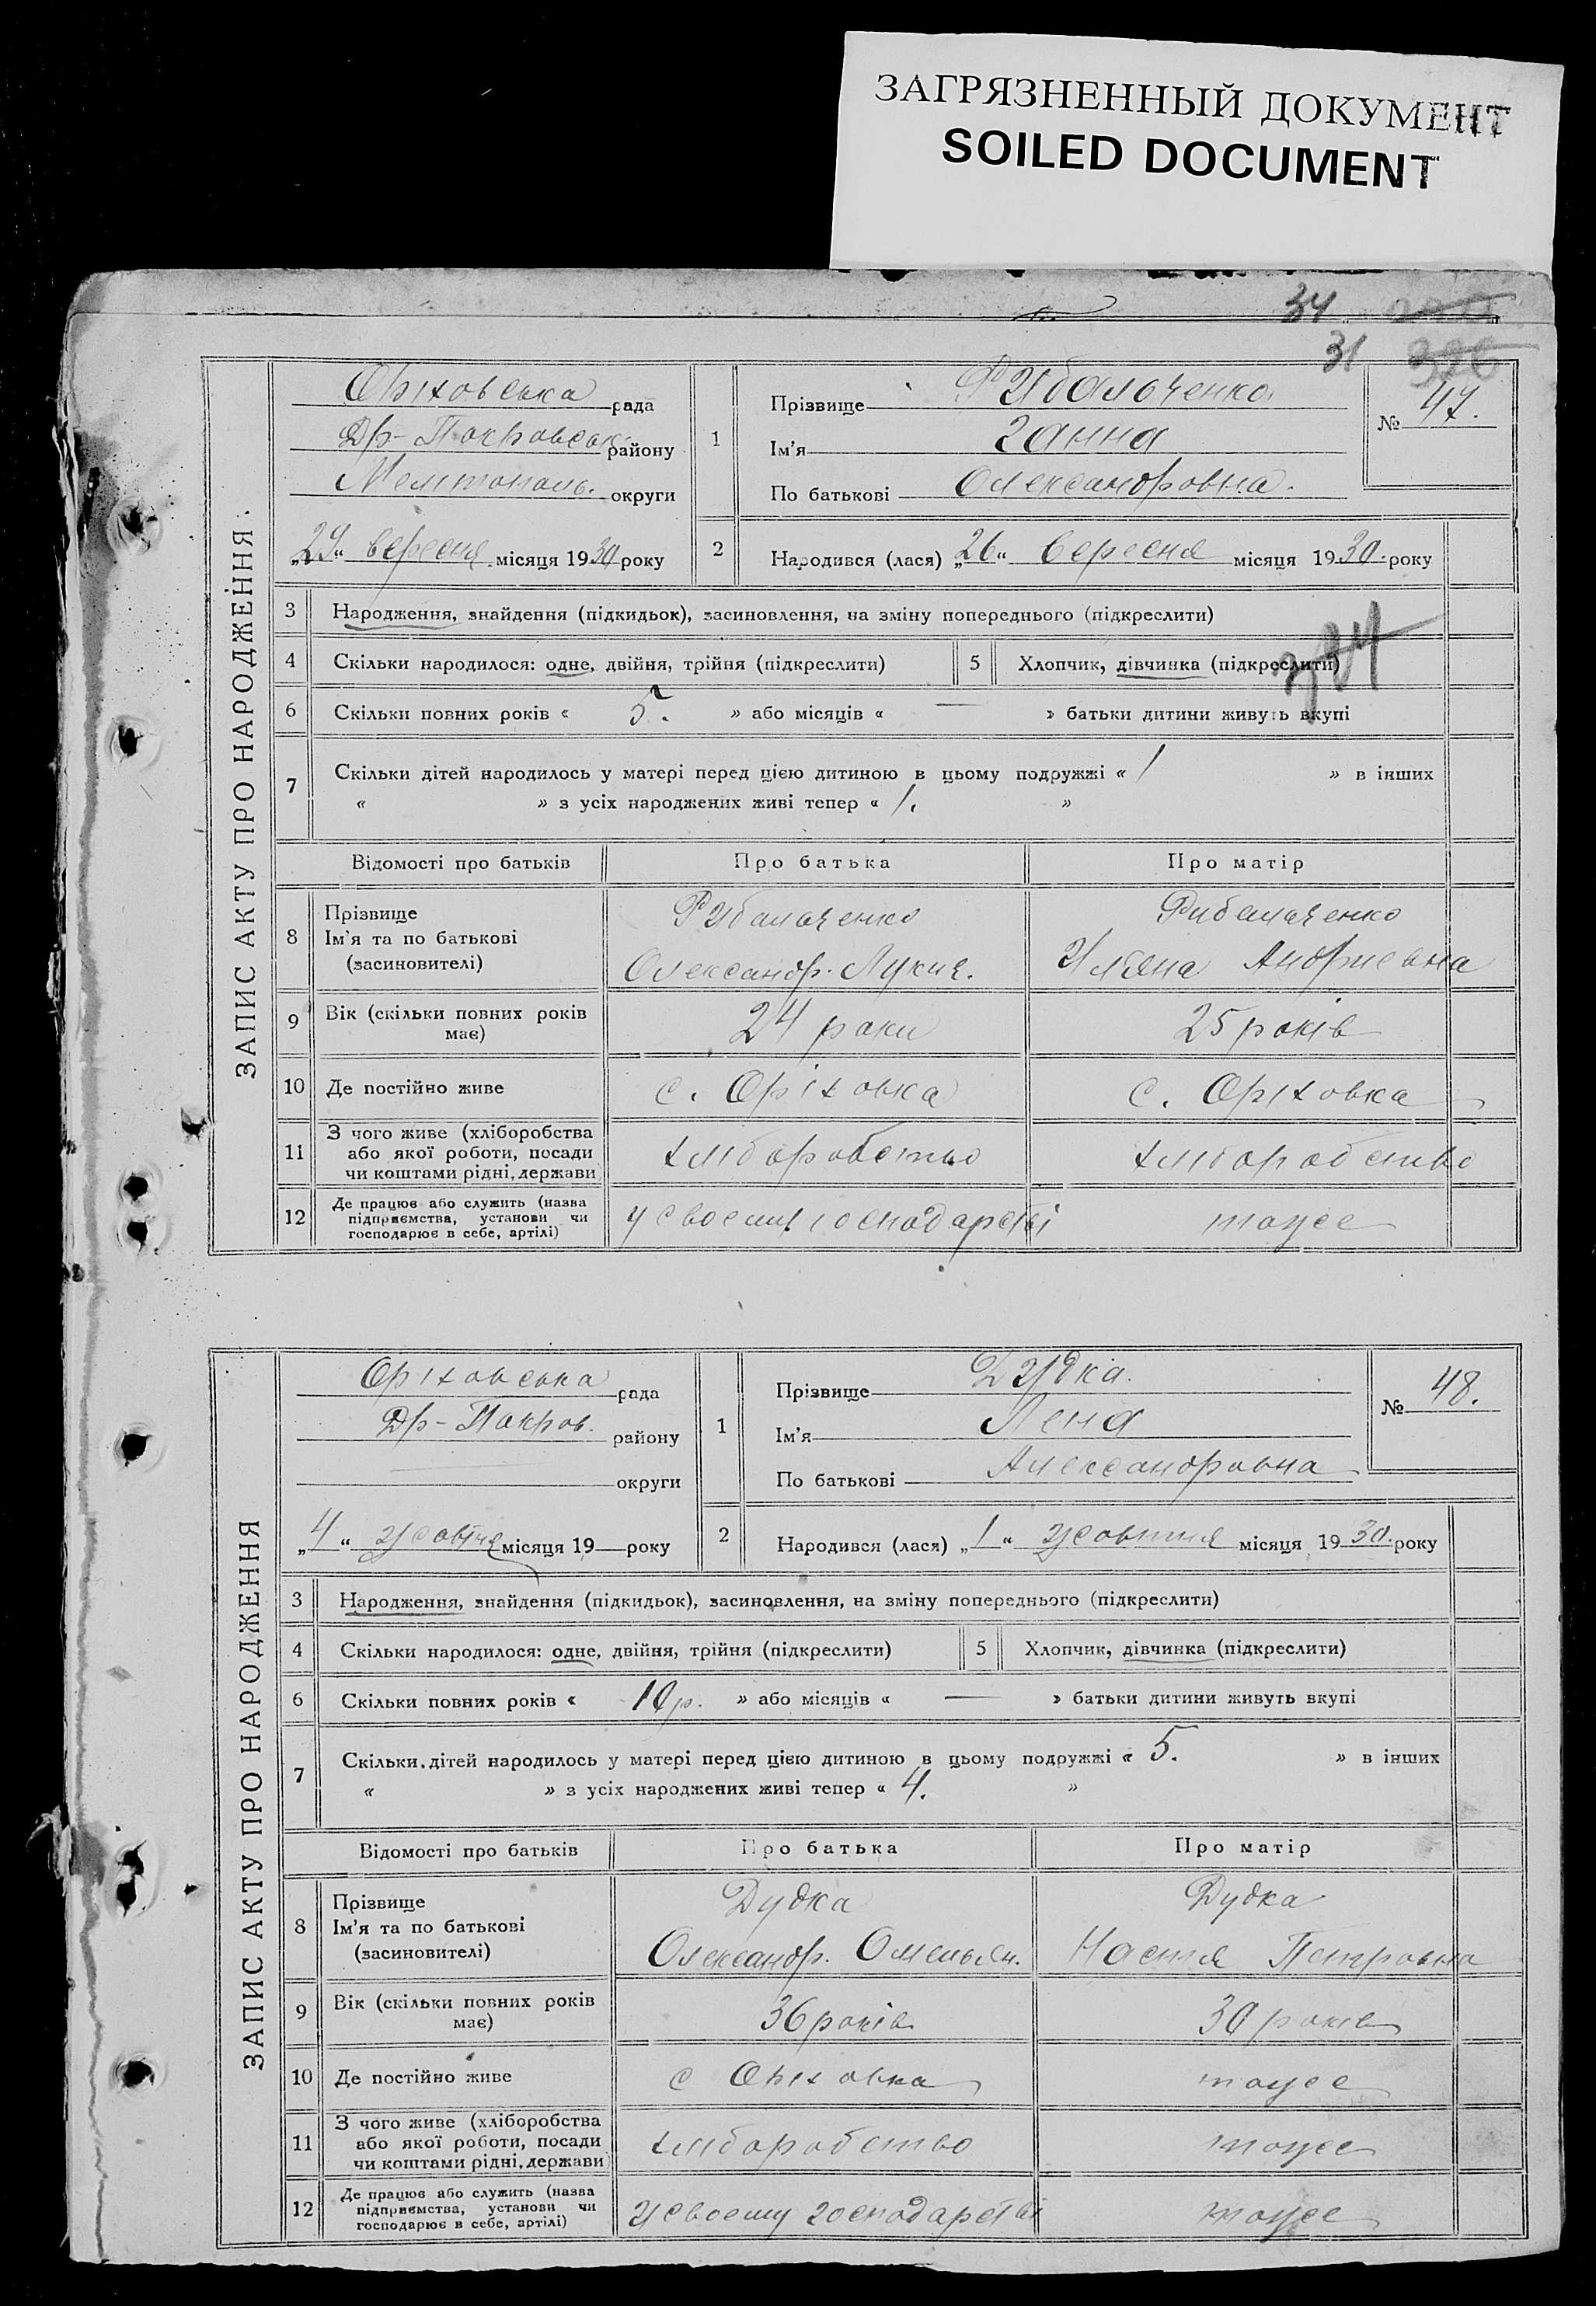 ЗАГРЯЗНЕННЫЙ ДОКУМЕНТ
SOILED DOCUMENT
34
31 326
ЗАПИС АКТУ ПРО НАРОДЖЕННЯ
Оріховська рада
Др-Покровськ. району
Мелітополь. округи
„29“ вересня місяця 1930 року
1 Прізвище Рибальченко
Ім'я Ганна
По батькові Олександровна.
№ 47.
2 Народився (лася) „26“ вересня місяця 1930. року
3 Народження, знайдення (підкидьок), засиновлення, на зміну попереднього (підкреслити)
4 Скільки народилося: одне, двійня, трійня (підкреслити) 5 Хлопчик, дівчинка (підкреслити)
6 Скільки повних років « 5. » або місяців « — » батьки дитини живуть вкупі
7 Скільки дітей народилось у матері перед цією дитиною в цьому подружжі « 1 » в інших
« » з усіх народжених живі тепер « 1. »
Відомості про батьків Про батька Про матір
8 Прізвище
Ім'я та по батькові
(засиновителі)
Рибальченко
Олександр. Лукич.
Рибальченко
Уляна Андриевна
9 Вік (скільки повних років має) 24 роки 25 років
10 Де постійно живе с. Оріховка с. Оріховка
11 З чого живе (хліборобства
або якої роботи, посади
чи коштами рідні, держави
хліборобство хліборобство
12 Де працює або служить (назва
підприємства, установи чи
господарює в себе, артілі)
у своему господарстві тоже
ЗАПИС АКТУ ПРО НАРОДЖЕННЯ
Оріховська рада
Др-Покров. району
— округи
„4“ жовтня місяця 19— року
1 Прізвище Дудка.
Ім'я Лена
По батькові Александровна
№ 48.
2 Народився (лася) „1“ жовтня місяця 1930. року
3 Народження, знайдення (підкидьок), засиновлення, на зміну попереднього (підкреслити)
4 Скільки народилося: одне, двійня, трійня (підкреслити) 5 Хлопчик, дівчинка (підкреслити)
6 Скільки повних років « 10 р. » або місяців « — » батьки дитини живуть вкупі
7 Скільки дітей народилось у матері перед цією дитиною в цьому подружжі « 5. » в інших
« » з усіх народжених живі тепер « 4. »
Відомості про батьків Про батька Про матір
8 Прізвище
Ім'я та по батькові
(засиновителі)
Дудка
Олександр. Омельян.
Дудка
Настя Петровна
9 Вік (скільки повних років має) 36 років 30 років
10 Де постійно живе с Оріховка тоже
11 З чого живе (хліборобства
або якої роботи, посади
чи коштами рідні, держави
хліборобство тоже
12 Де працює або служить (назва
підприємства, установи чи
господарює в себе, артілі)
у своему господарстві тоже